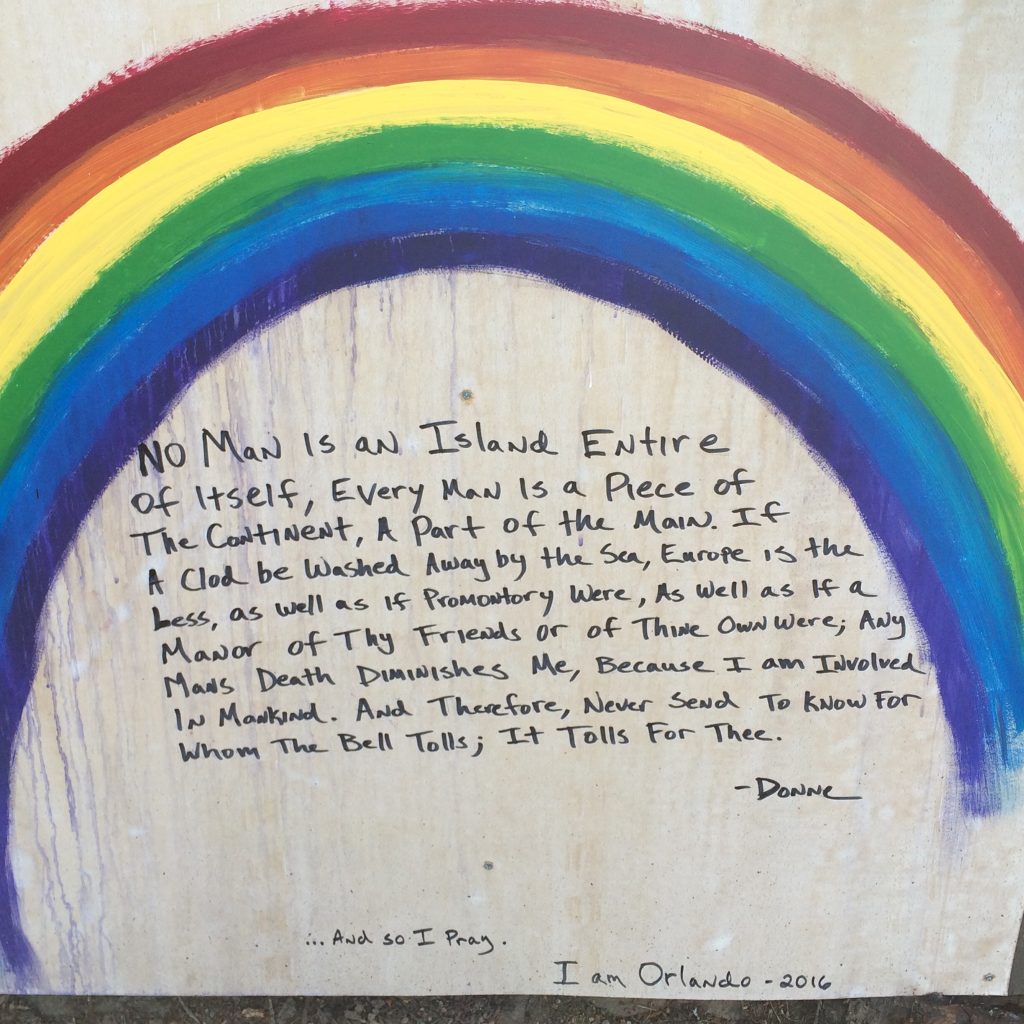 No Man Is an Island Entire
of Itself, Every Man Is a Piece of
The Continent, A Part of the Main. If
A Clod be Washed Away by the Sea, Europe is the
Less, as well as if Promontory Were, As Well as If a
Manor of Thy Friends or of Thine Own Were; Any
Mans Death Diminishes Me, Because I am Involved
In Mankind. And Therefore, Never Send To Know For
Whom The Bell Tolls; It Tolls For Thee.
- Donne
... And so I Pray.
I am Orlando - 2016